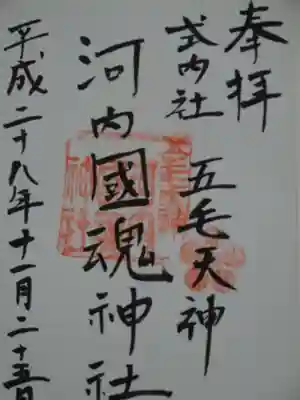 奉拝
式内社 五毛天神
河内國魂神社
平成二十八年十一月二十五日